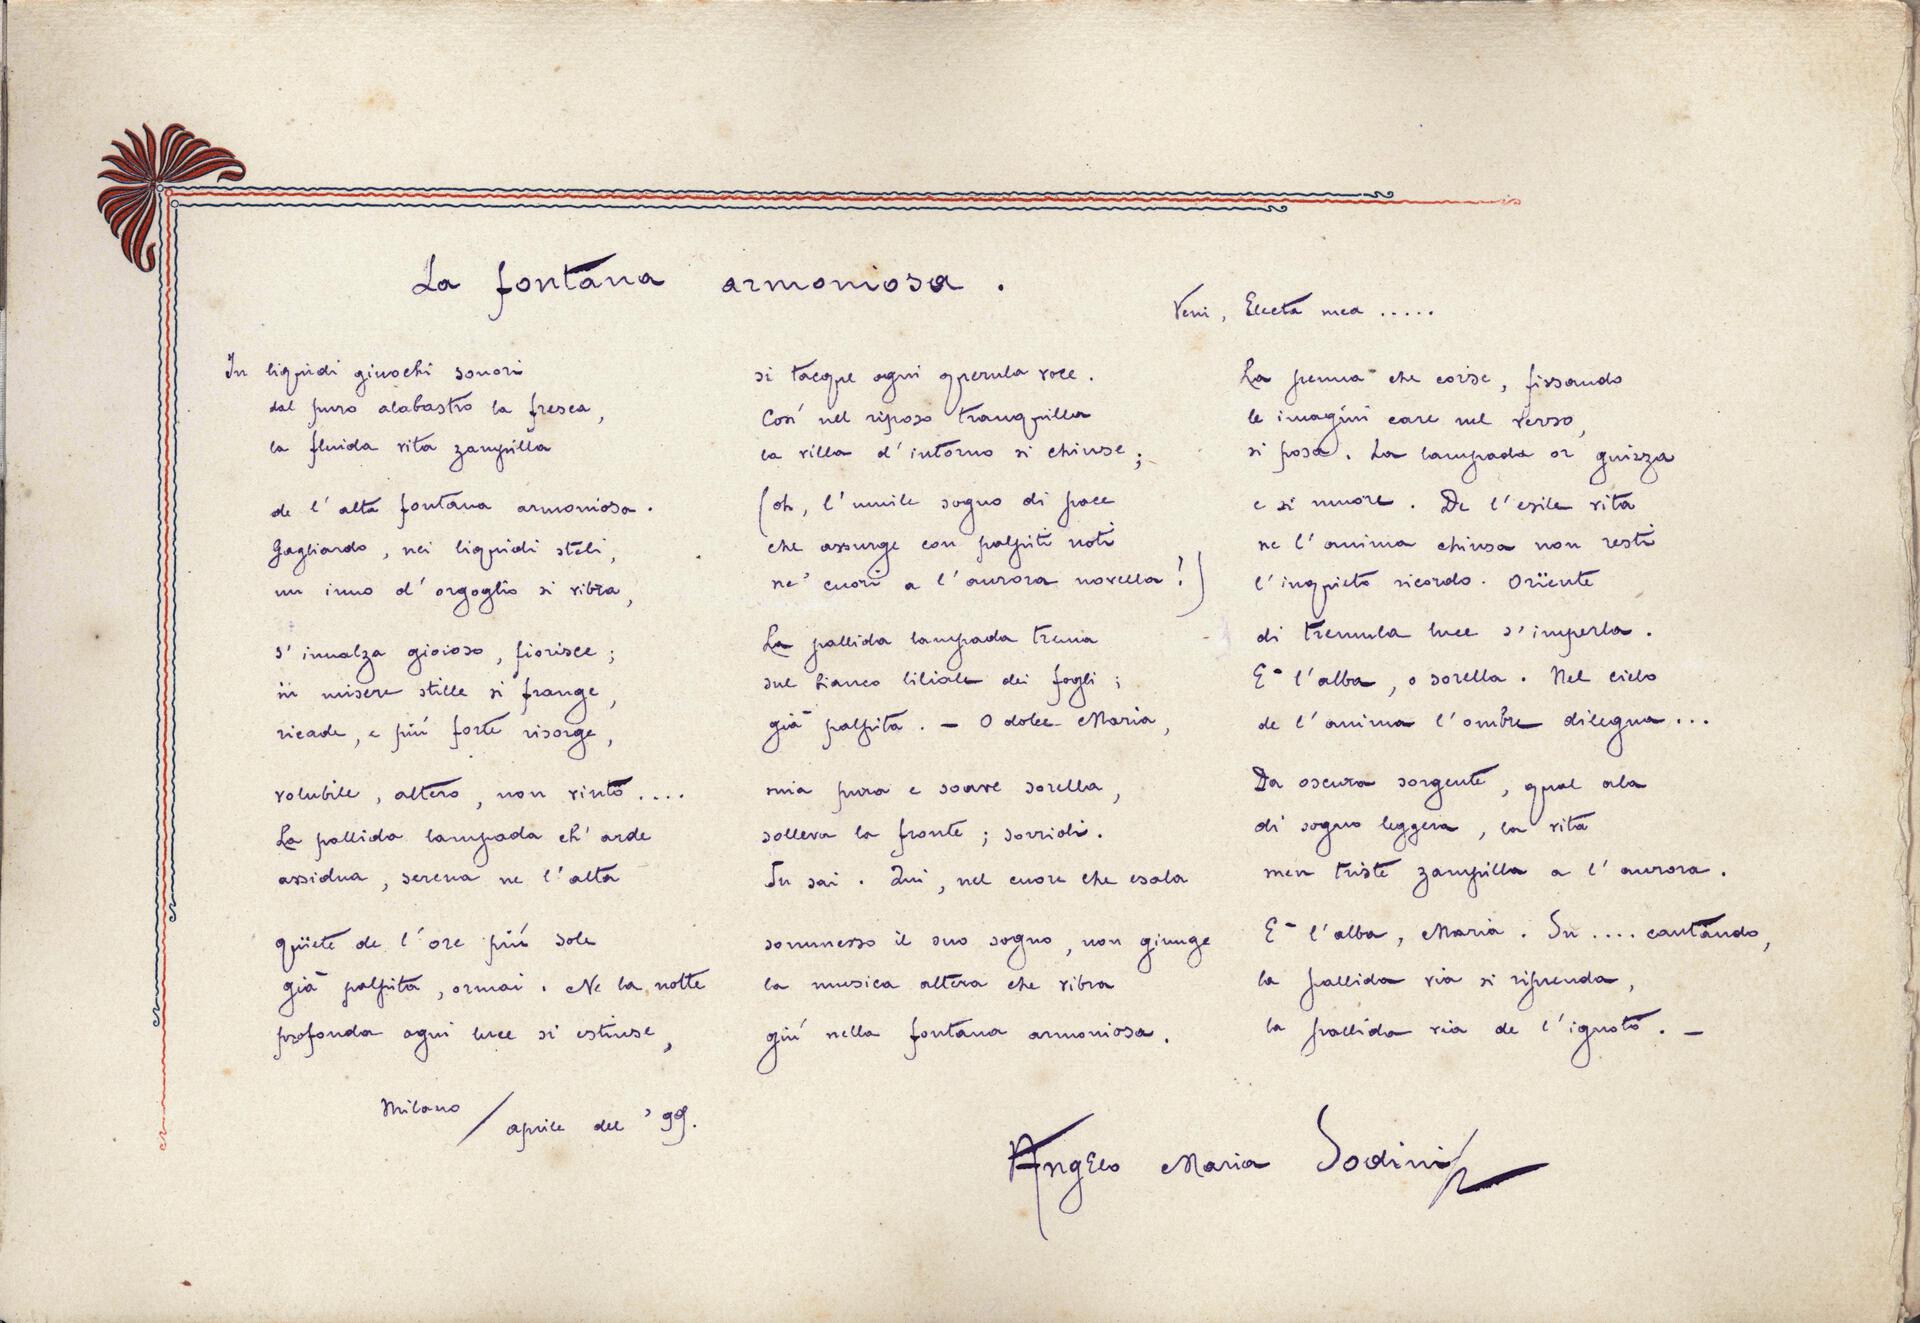 La fontana armoniosa.
Veni, Electa mea .....
In liquidi giuochi sonori
dal puro alabastro la fresca,
la fluida vita zampilla
de l'alta fontana armoniosa.
Gagliardo, nei liquidi steli,
un inno d'orgoglio si vibra,
s'innalza gioioso, fiorisce;
in misere stille si frange,
ricade, e più forte risorge,
volubile, altero, non vinto ....
La pallida lampada ch'arde
assidua, serena ne l'alta
qüiete de l'ore più sole
già palpita, ormai. Ne la notte
profonda ogni luce si estinse,
si tacque ogni querula voce.
Così nel riposo tranquilla
la villa d'intorno si chiuse;
(oh, l'umile sogno di pace
che assurge con palpiti noti
ne' cuori a l'aurora novella!)
La pallida lampada trema
sul bianco liliale dei fogli;
già palpita. — O dolce Maria,
mia pura e soave sorella,
solleva la fronte; sorridi.
Tu sai. Qui, nel cuore che esala
sommesso il suo sogno, non giunge
la musica altera che vibra
giù nella fontana armoniosa.
La penna che corse, fissando
le imagini care nel verso,
si posa. La lampada or guizza
e si muore. De l'esile vita
ne l'anima chiusa non resti
l'inquieto ricordo. Orïente
di tremula luce s'imperla.
E' l'alba, o sorella. Nel cielo
de l'anima l'ombre dilegua...
Da oscura sorgente, qual ala
di sogno leggera, la vita
men triste zampilla a l'aurora.
E' l'alba, Maria. Su .... cantando,
la pallida via si riprenda,
la pallida via de l'ignoto. —
Milano / aprile del '99.
Angelo Maria Sodini